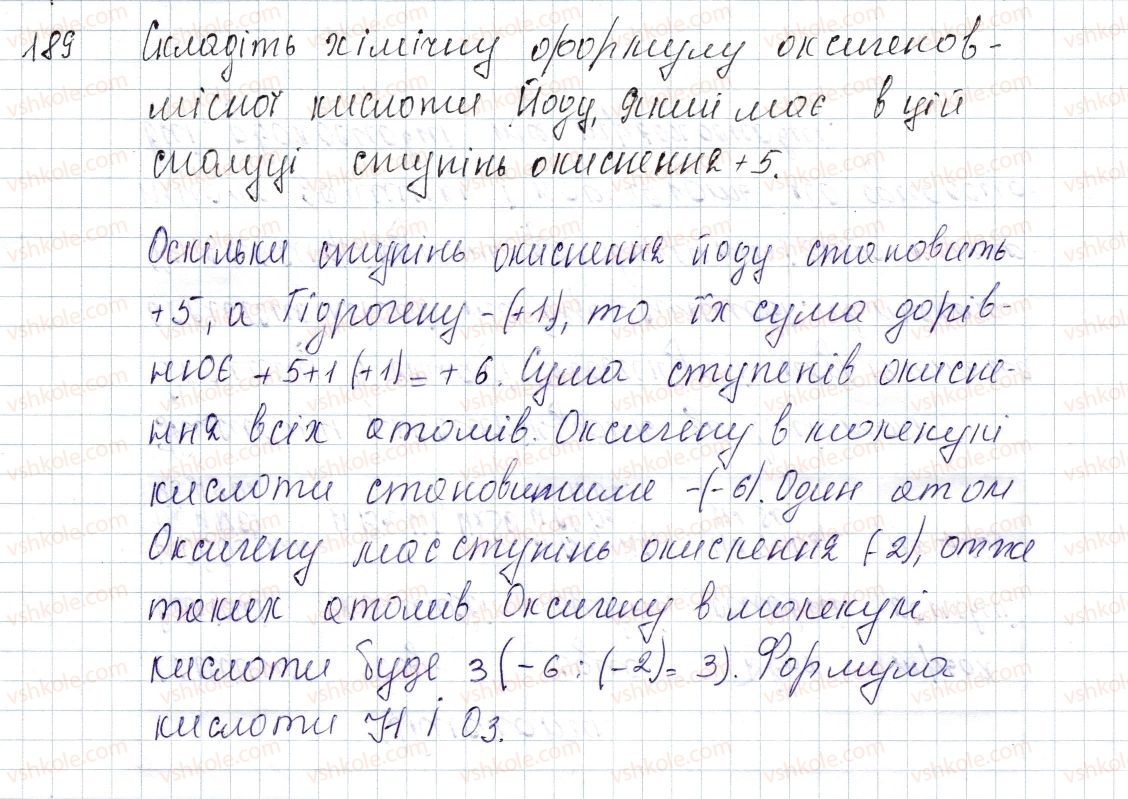 189 Складіть хімічну формулу оксигенов-
місної кислоти Йоду, який має в цій
сполуці ступінь окиснення +5.
Оскільки ступінь окиснення йоду становить
+5, а Гідрогену - (+1), то їх сума дорів-
нює +5+1 (+1) = +6. Сума ступенів окисне-
ння всіх атомів. Оксигену в молекулі
кислоти становитиме -(-6). Один атом
Оксигену має ступінь окиснення (-2), отже
таких атомів Оксигену в молекулі
кислоти буде 3 (-6 : (-2) = 3). Формула
кислоти H I O3.